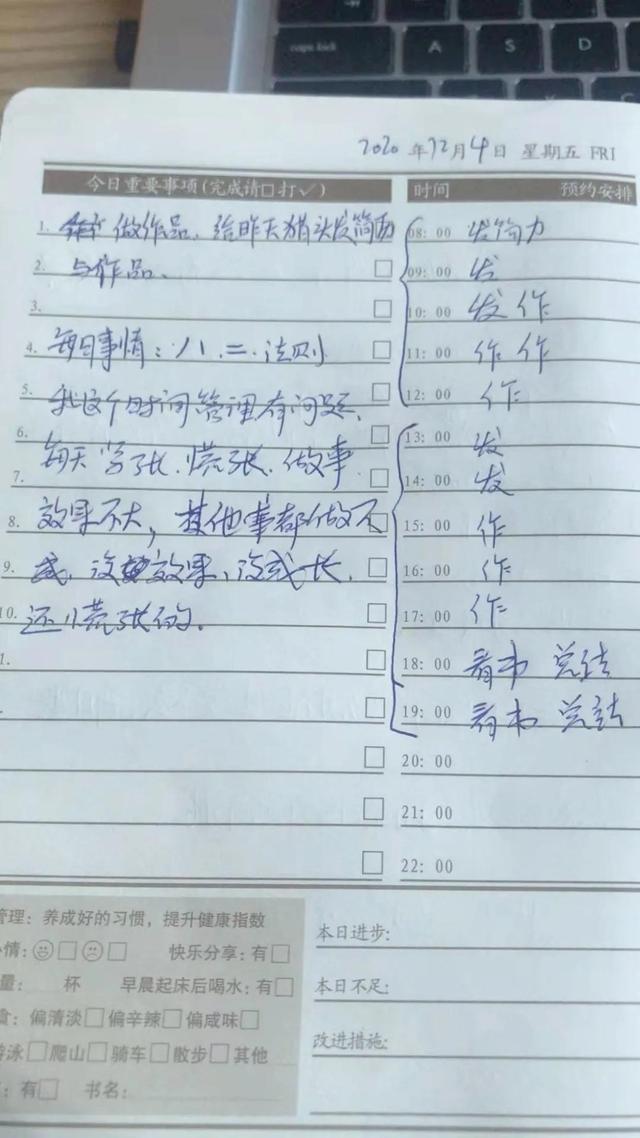 caps lock
A
S
D
2020 年 12 月 4 日 星期五 FRI
今日重要事项(完成请□打✓)
时间 预约安排
1. 做作品、给昨天猎头发简历
2. 与作品、
3.
4. 每日事情:八.二.法则
5. 我这个时间管理有问题、
6.
每天 紧张.慌张.做事
7.
8. 效果不大,其他事都做不
9. 成、没效果、没成长.
10. 还慌张的.
08: 00 发简力
09: 00 发
10: 00 发 作
11: 00 作 作
12: 00 作
13: 00 发
14: 00 发
15: 00 作
16: 00 作
17: 00 作
18: 00 看书 总结
19: 00 看书 总结
20: 00
21: 00
22: 00
管理: 养成好的习惯,提升健康指数
心情: □ □ 快乐分享: 有□
量: 杯 早晨起床后喝水: 有□
食: 偏清淡□ 偏辛辣□ 偏咸味□
游泳□ 爬山□ 骑车□ 散步□ 其他
: 有□ 书名:
本日进步:
本日不足:
改进措施: